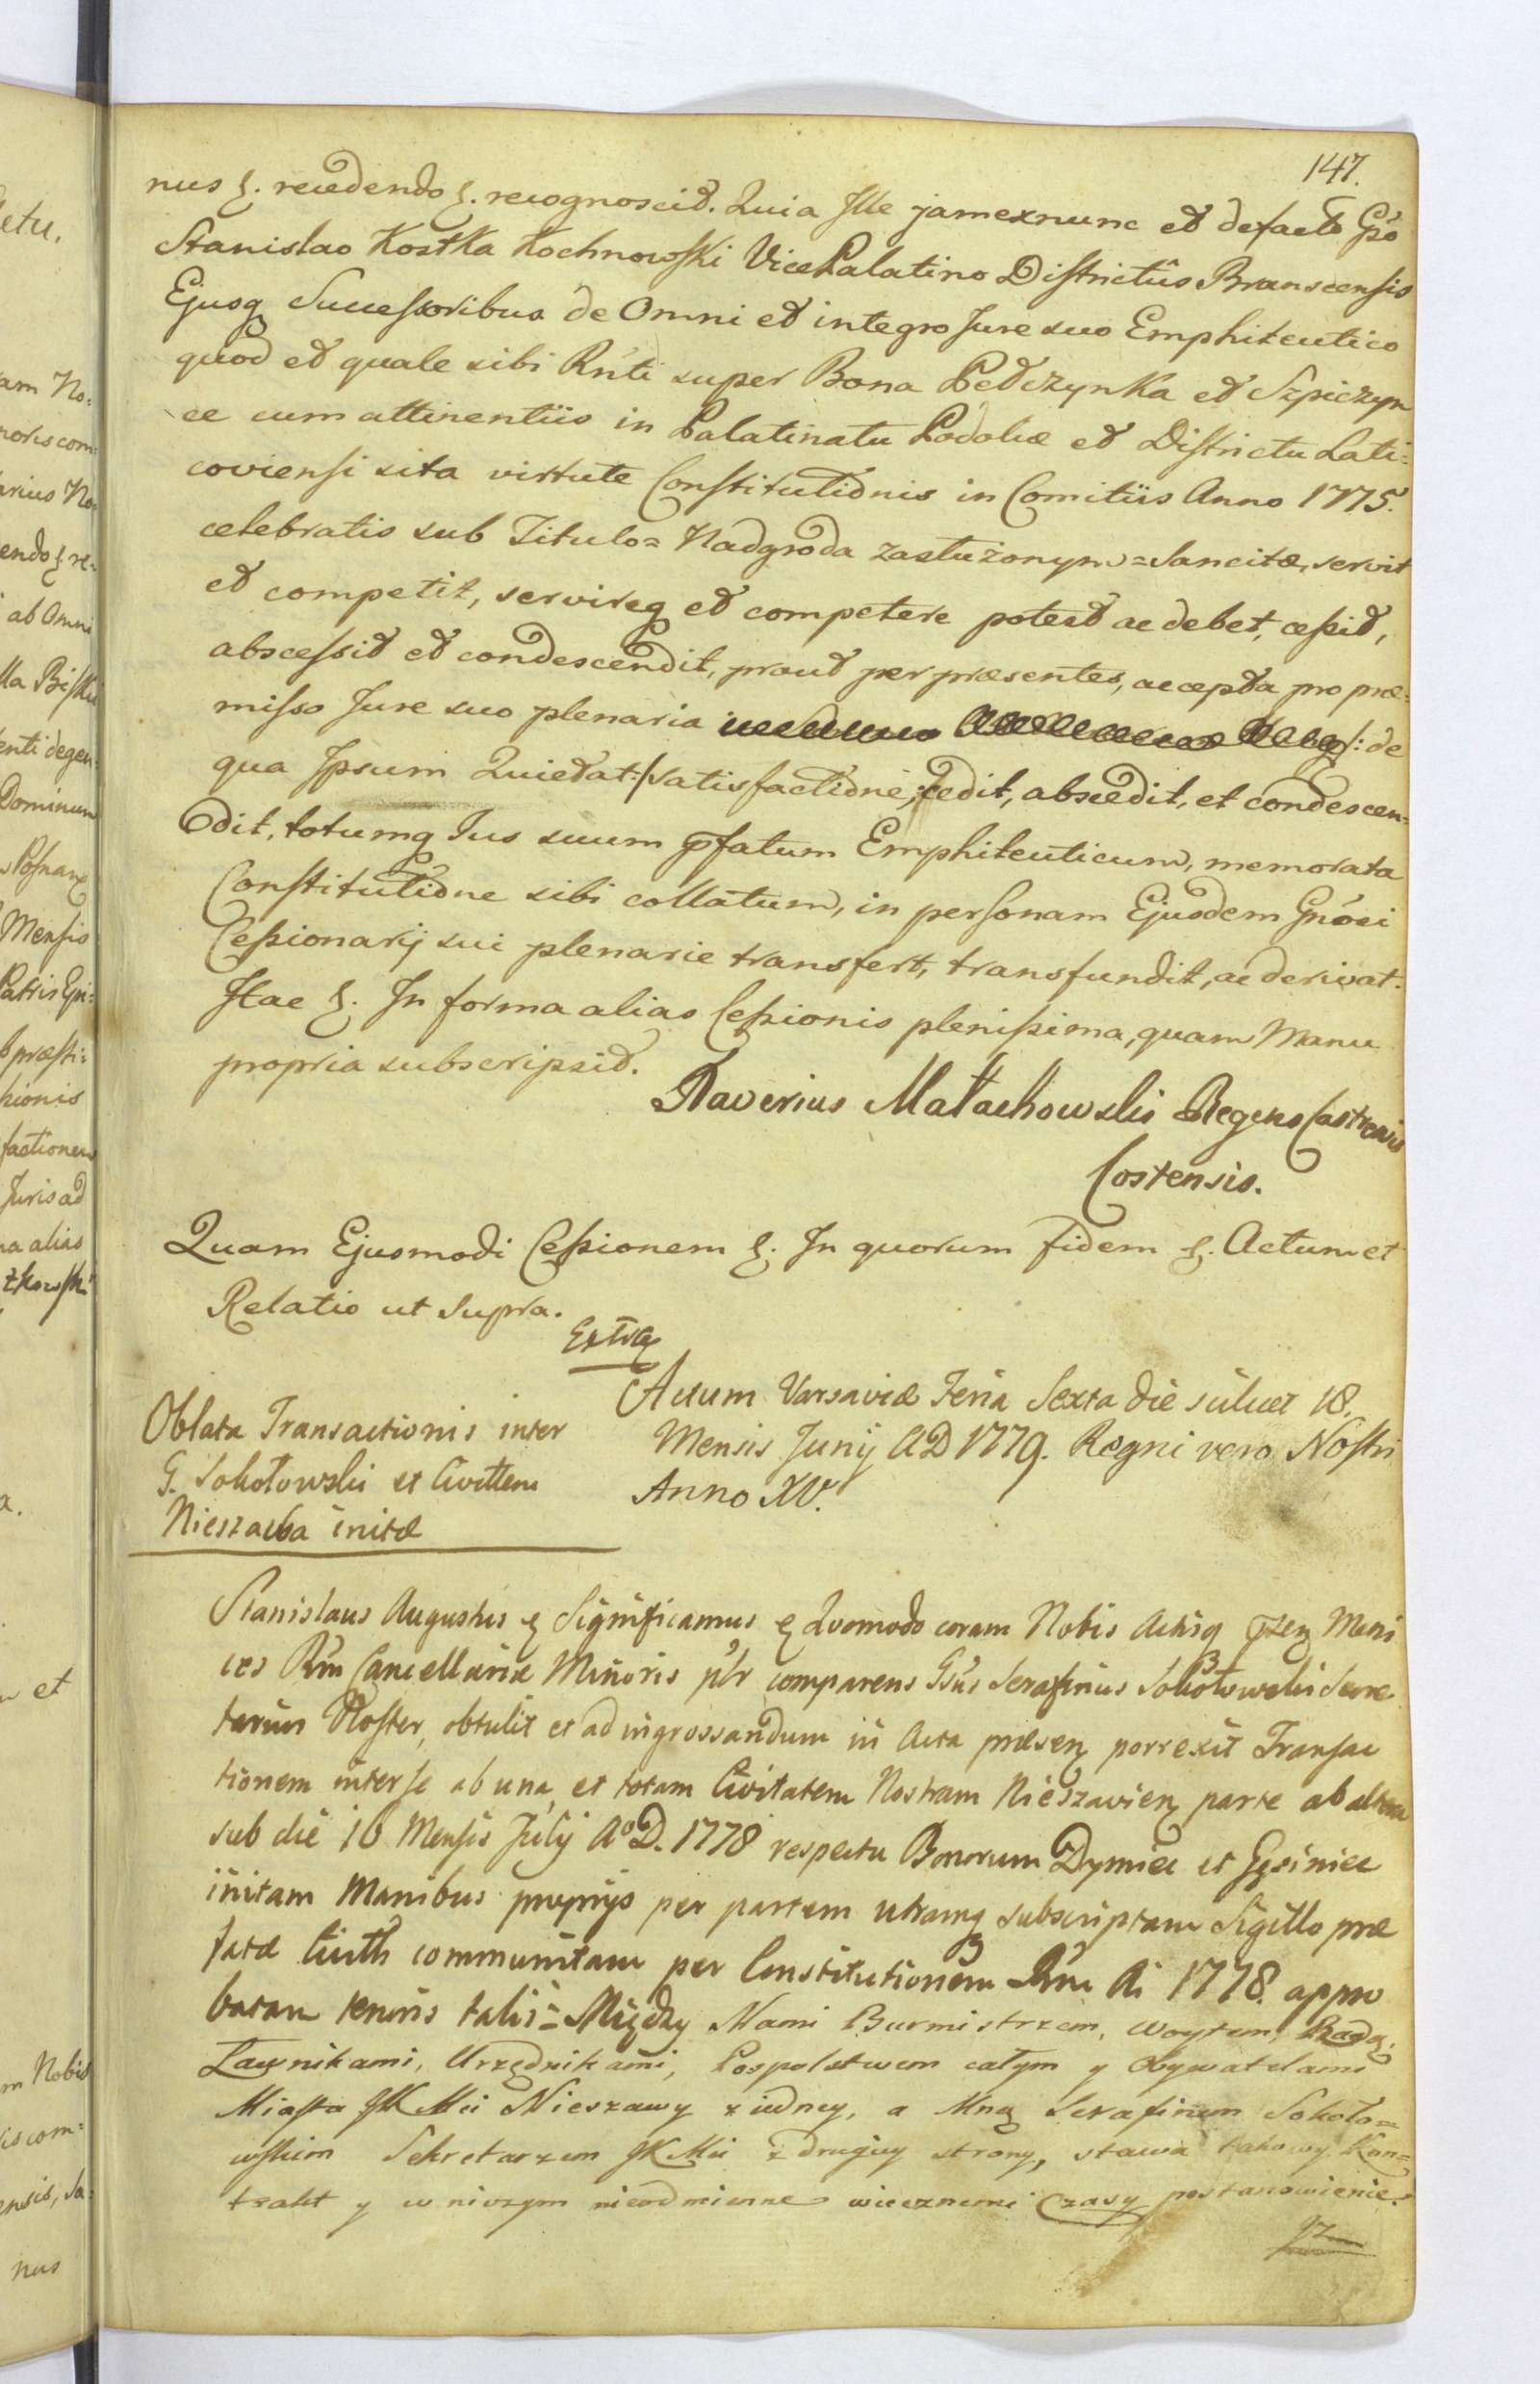 147.
nus &. recedendo &. recognoscit. Quia Ille jamexnunc et defacto Gso
Stanislao Kostka Kochnowski VicePalatino Districtûs Branscensis
Ejusq Successoribus de Omni et integro Jure suo Emphiteutico
quod et quale sibi Rnti super Bona Pedczynka et Szpiczyn
ce cum attinentiis in Palatinatu Podoliæ et Districtu Lati=
coviensi sita virtute Constitutionis in Comitiis Anno 1775.
celebratis sub Titulo= Nadgroda zasłużonym=Sancitæ, servit
et competit, servireq et competere potest ac debet, cessit,
abscessit et condescendit, prout per præsentes, accepta pro præ=
misso Jure suo plenaria /: de
qua Ipsum Quietat:/ satisfactione, cedit, abscedit, et condescen=
dit, totumq Jus suum pfatum Emphiteuticum, memorata
Constitutione sibi collatum, in personam Ejusdem Gnosi
Cessionarij sui plenarie transfert, transfundit, ac derivat.
Hac &. In forma alias Cessionis plenissima, quam Manu
propria subscripsit.
Xaverius Małachowski Regens Castrensis
Costensis.
Quam Ejusmodi Cessionem &. In quorum fidem &. Actum et
Relatio ut Supra.
Extrq
Oblata Transactionis inter
G. Sokołowski et Civittem
Nieszawa initæ
Actum Varsaviæ Feria Sexta die scilicet 18.
Mensis Junij AD 1779. Regni vero Nostri
Anno XV.
Stanislaus Augustus & Significamus & Quomodo coram Nobis Actisq pseq Metri
ces Rni Cancellariæ Minoris plr comparens Gsus Serafinus Sokołowski Secre
tarius Noster, obtulit et ad ingrossandum in Acta præsenq porrexit Transac
tionem inter se ab una, et totam Civitatem Nostram Nieszavienq parte ab altera
sub die 16 Mensis Julij AoD. 1778 respectu Bonorum Dymiec et Gęsiniec
initam Manibus proprijs per partem utramq subscriptam Sigillo præ
fatæ Civith communitam per Constitutionem Rni Ai 1778. appro
batam tenoris talis= Między Nami Burmistrzem, Woytem, Radą,
Ławnikami, Urzędnikami, Pospolstwem całym y Obywatelami
Miasta JKMci Nieszawy z iedney, a Mną Serafinem Sokoło=
wskim Sekretarzem JKMci z drugiey strony, stawa takowy Kon=
trakt y w niczym nieodmienne wiecznemi czasy postanowienie.
Iż